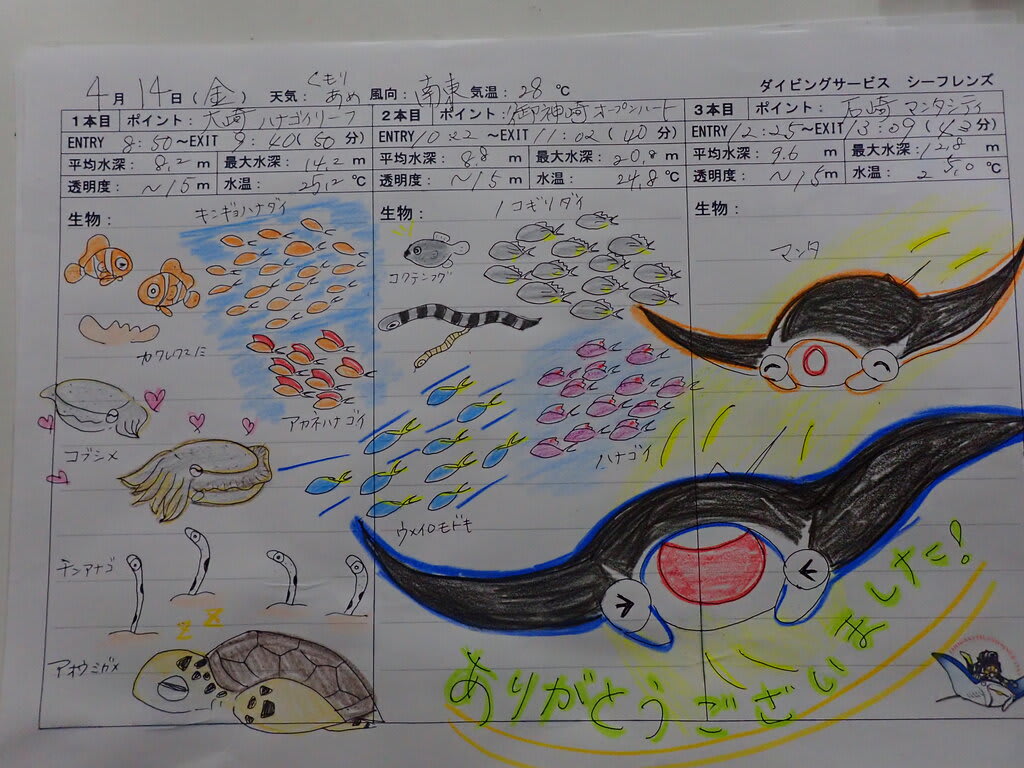 4月14日(金) 天気: くもり あめ 風向: 南東 気温: 28℃
ダイビングサービス シーフレンズ
1本目 ポイント: 大崎 ハナゴイリーフ
ENTRY 8:50~EXIT 9:40(50分)
平均水深: 8.2m 最大水深: 14.2m
透明度: ~15m 水温: 25.2℃
生物:
キンギョハナダイ
カクレクマノミ
アカネハナゴイ
コブシメ
チンアナゴ
アオウミガメ
2本目 ポイント: 御神崎 オープンハート
ENTRY 10:22~EXIT 11:02(40分)
平均水深: 8.8m 最大水深: 20.8m
透明度: ~15m 水温: 24.8℃
生物:
ノコギリダイ
コクテンフグ
ハナゴイ
ウメイロモドキ
3本目 ポイント: 石崎 マンタシティ
ENTRY 12:25~EXIT 13:09(43分)
平均水深: 9.6m 最大水深: 12.8m
透明度: ~15m 水温: 25.0℃
生物:
マンタ
ありがとうございました!